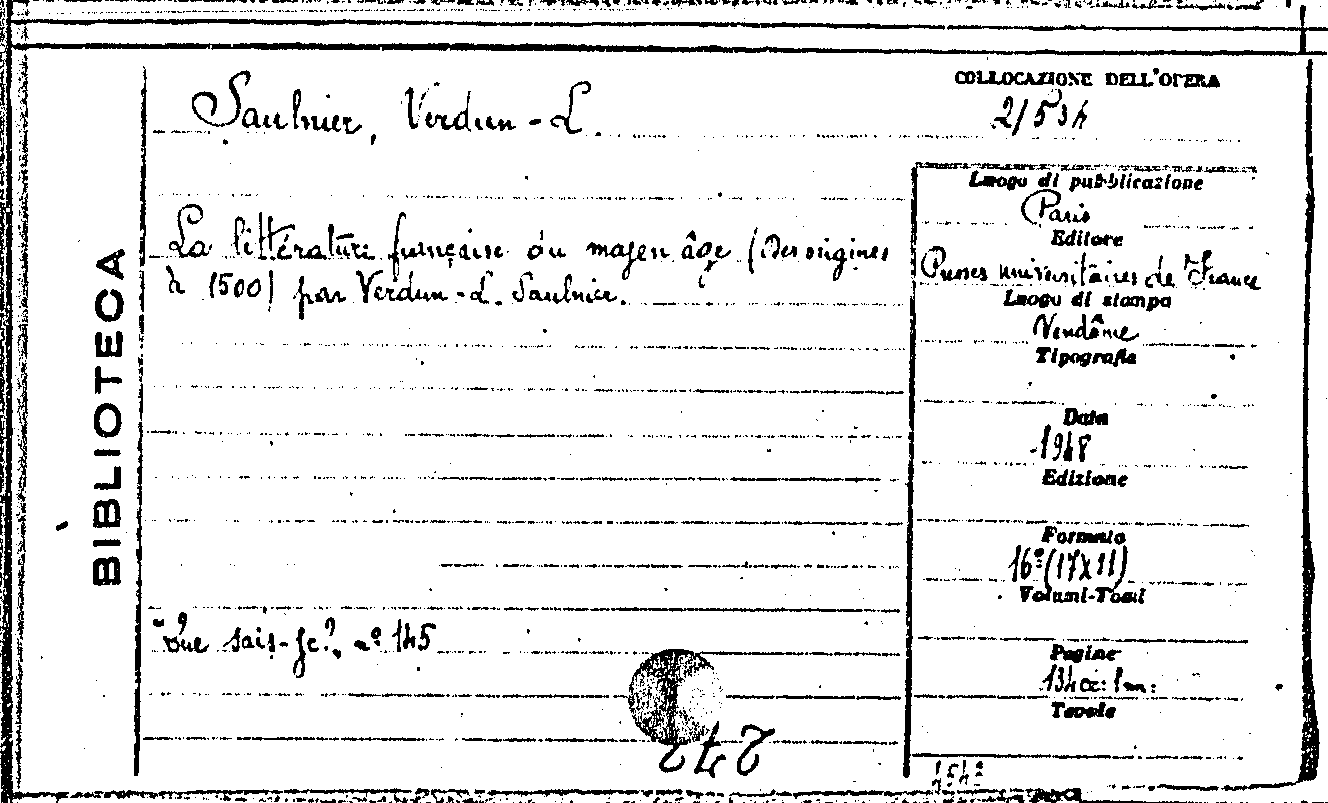 COLLOCAZIONE DELL'OPERA
Saulnier, Verdun-L.
2/534
Luogo di pubblicazione
Paris
Editore
La littérature française du moyen âge (Des origines
à 1500) par Verdun-L. Saulnier.
Presses universitaires de France
Luogo di stampa
Vendôme
Tipografia
Data
1948
Edizione
Formato
16º (17x11)
Volumi-Tomi
"Que sais-je?" nº 145
Pagine
134
Tavole
242
BIBLIOTECA